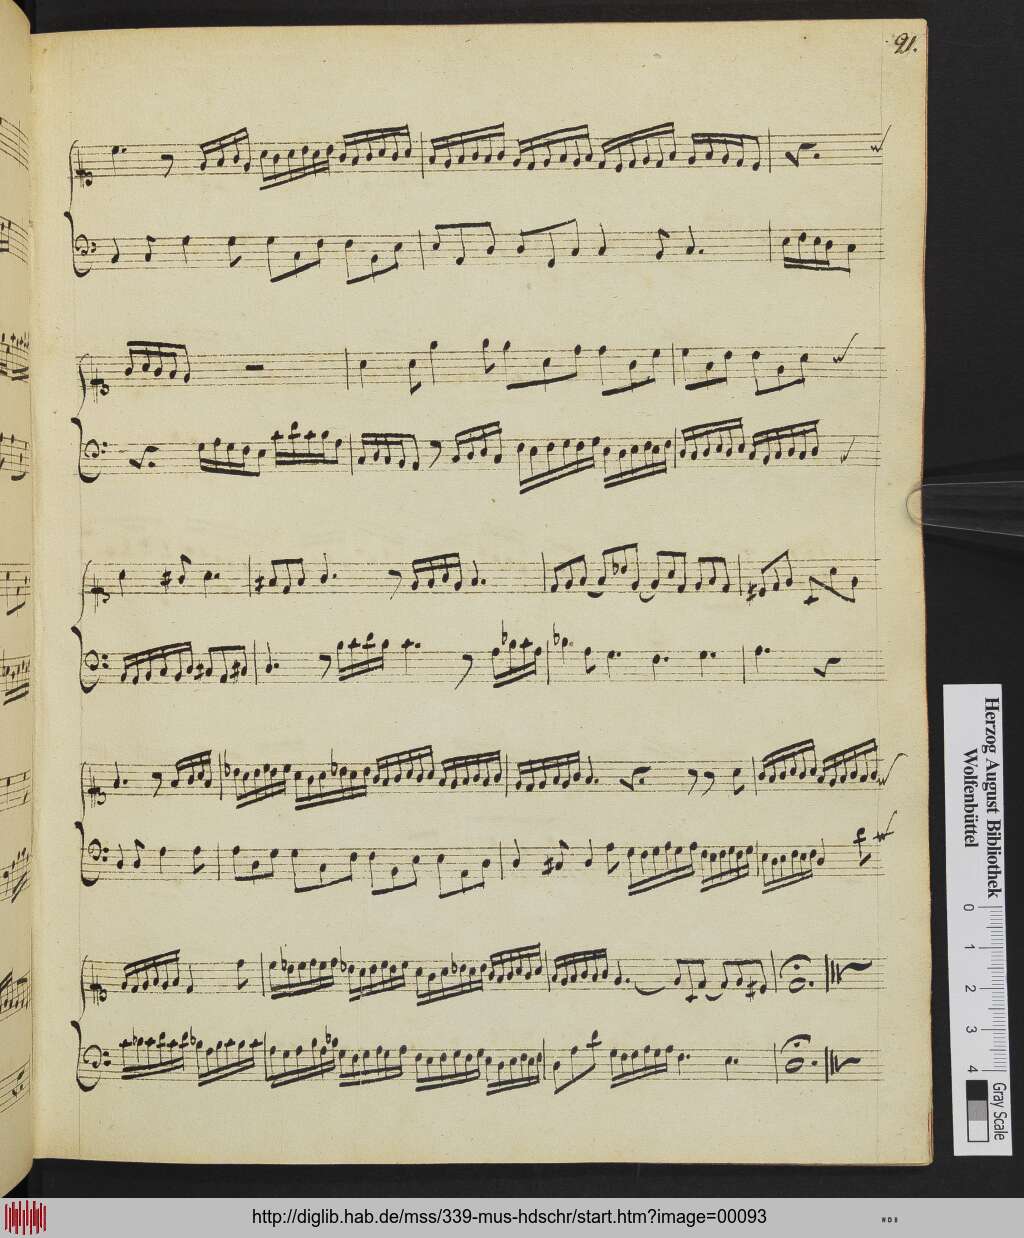 91.
Herzog August Bibliothek
Wolfenbüttel
0 1 2 3 4
Gray Scale
http://diglib.hab.de/mss/339-mus-hdschr/start.htm?image=00093